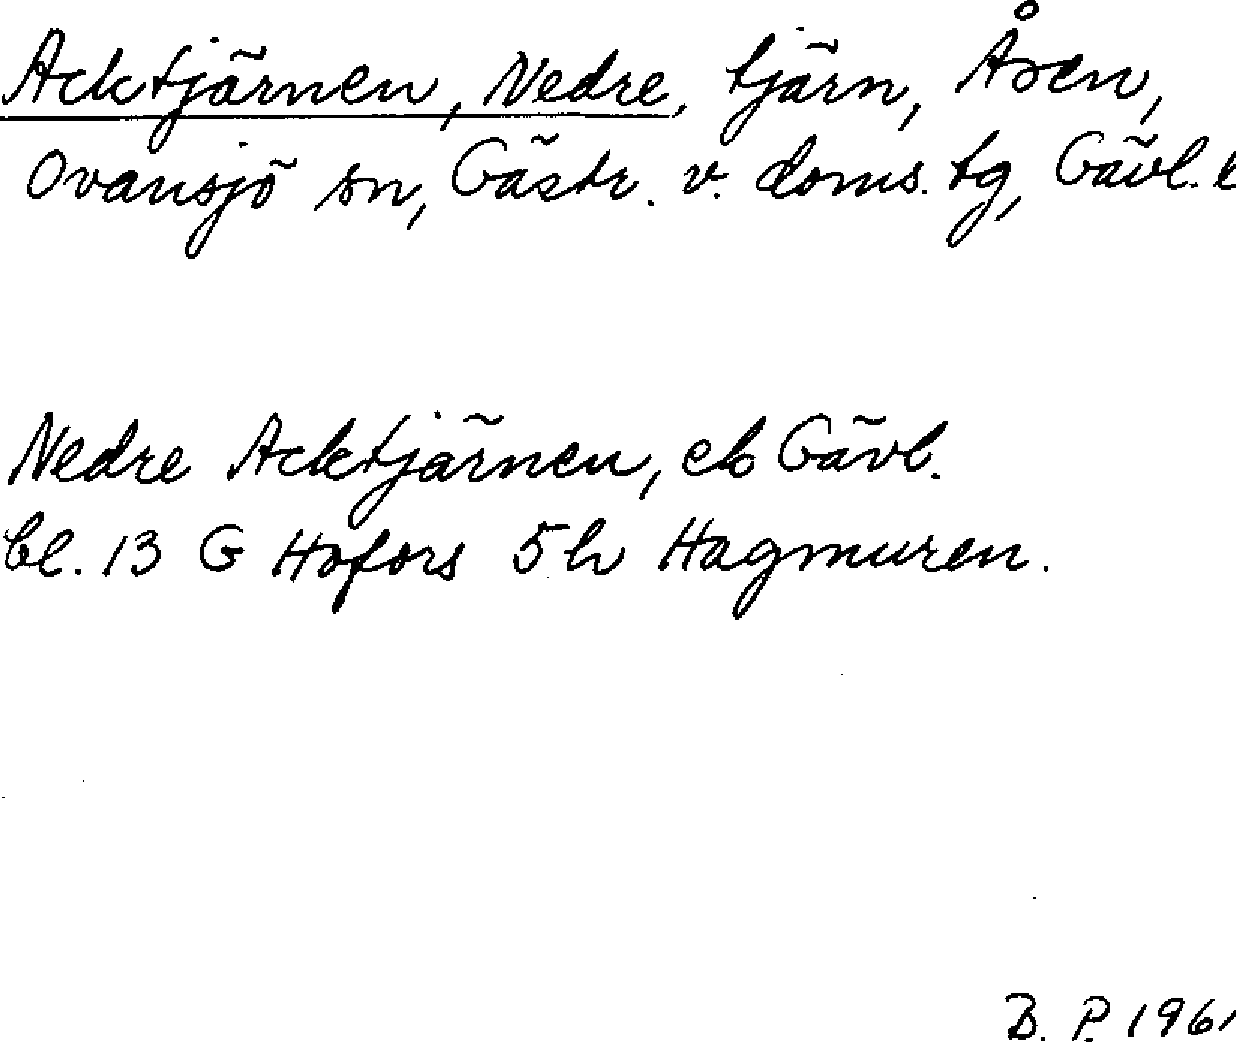 Acktjärnen, Nedre, tjärn, Åsen,
Ovansjö sn, Gästr. v. doms. tg, Gävl. l
Nedre Acktjärnen, eb Gävl.
bl. 13 G Hofors 5h Hagmuren.
B. P. 1961